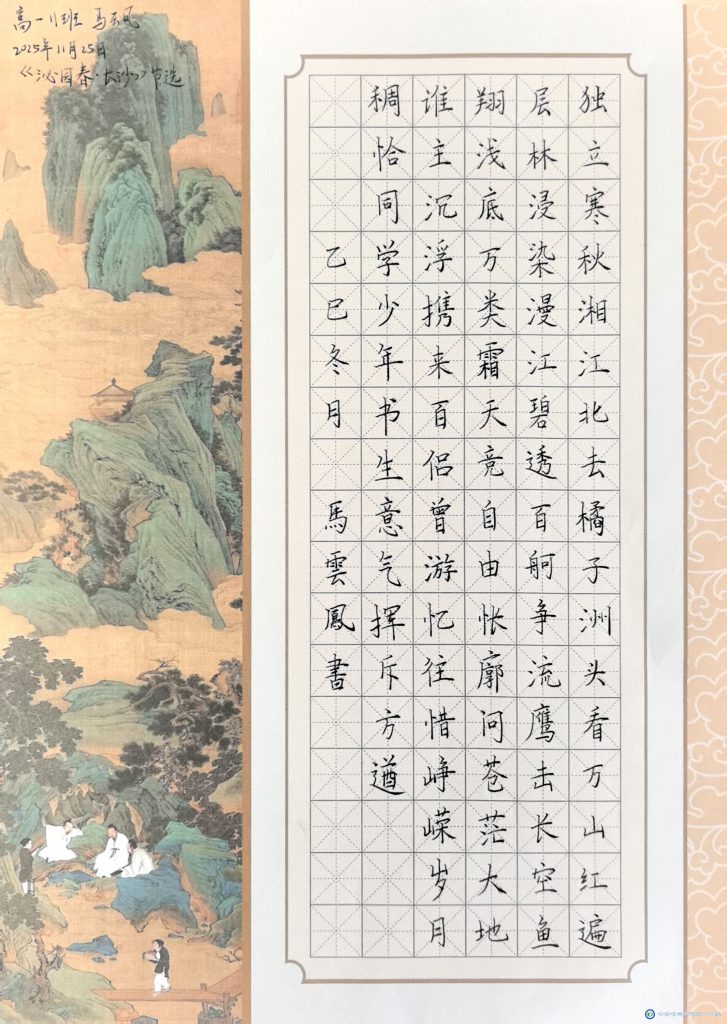 高一11班 马云凤
2025年11月25日
《沁园春·长沙》节选
独立寒秋湘江北去橘子洲头看万山红遍
层林浸染漫江碧透百舸争流鹰击长空鱼
翔浅底万类霜天竞自由怅廓问苍茫大地
谁主沉浮携来百侣曾游忆往惜峥嵘岁月
稠恰同学少年书生意气挥斥方遒
乙巳冬月 馬雲鳳書